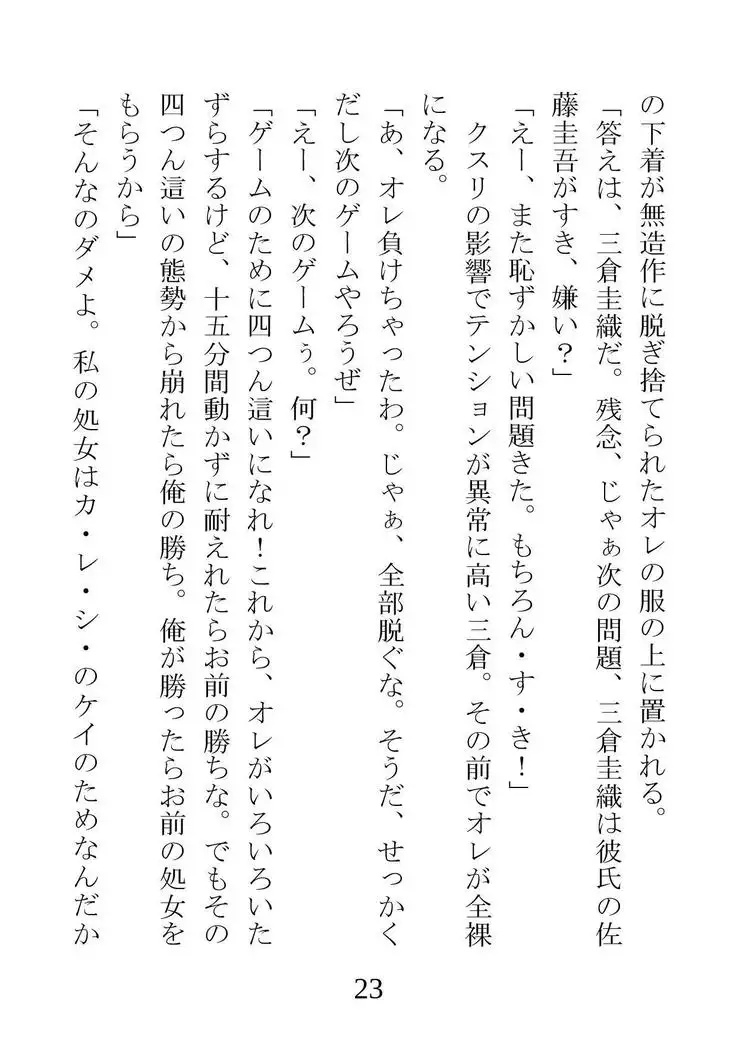 の下着が無造作に脱ぎ捨てられたオレの服の上に置かれる。
「答えは、三倉圭織だ。残念、じゃぁ次の問題、三倉圭織は彼氏の佐
藤圭吾がすき、嫌い？」
「えー、また恥ずかしい問題きた。もちろん・す・き！」
クスリの影響でテンションが異常に高い三倉。その前でオレが全裸
になる。
「あ、オレ負けちゃったわ。じゃぁ、全部脱ぐな。そうだ、せっかく
だし次のゲームやろうぜ」
「えー、次のゲームぅ。何？」
「ゲームのために四つん這いになれ！これから、オレがいろいろいた
ずらするけど、十五分間動かずに耐えれたらお前の勝ちな。でもその
四つん這いの態勢から崩れたら俺の勝ち。俺が勝ったらお前の処女を
もらうから」
「そんなのダメよ。私の処女はカ・レ・シ・のケイのためなんだか
23